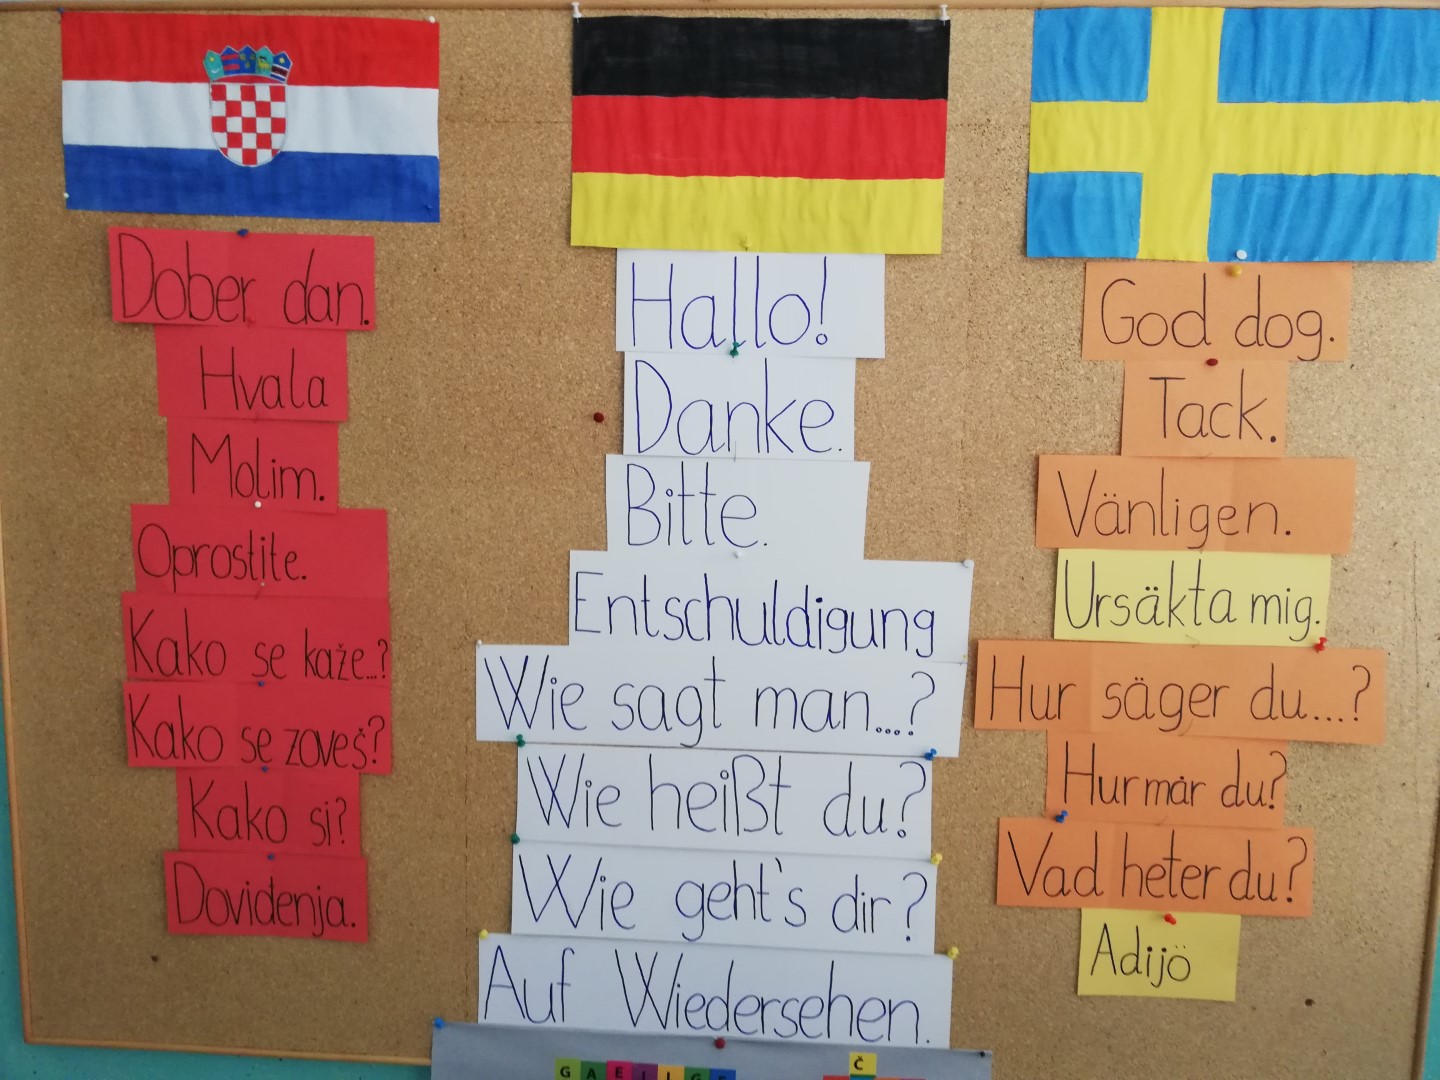 Dober dan.
Hvala
Molim.
Oprostite.
Kako se kaže...?
Kako se zoveš?
Kako si?
Doviđenja.
Hallo!
Danke.
Bitte.
Entschuldigung
Wie sagt man...?
Wie heißt du?
Wie geht's dir?
Auf Wiedersehen.
God dog.
Tack.
Vänligen.
Ursäkta mig.
Hur säger du...?
Hur mår du?
Vad heter du?
Adijö
GAEILGE
Č